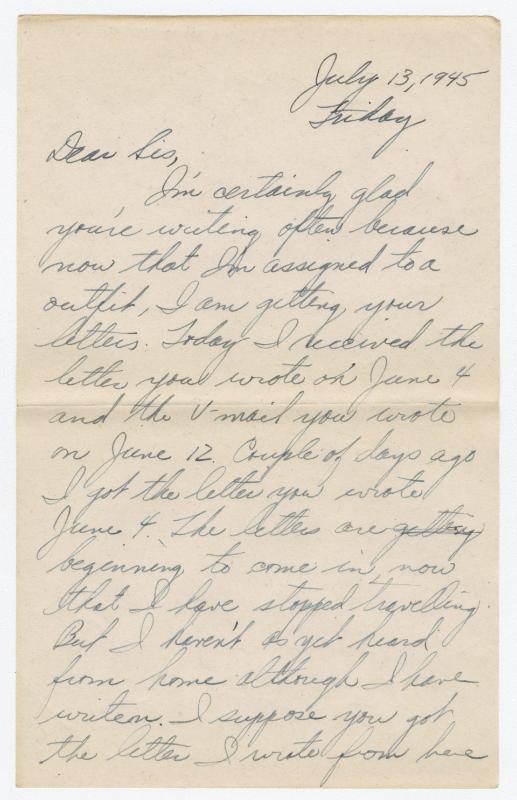 July 13, 1945
Friday
Dear Sis,
I'm certainly glad
you're writing often because
now that I'm assigned to a
outfit, I am getting your
letters. Today I received the
letter you wrote on June 4
and the V-mail you wrote
on June 12. Couple of days ago
I got the letter you wrote
June 4. The letters are getting
beginning to come in now
that I have stopped travelling.
But I haven't as yet heard
from home although I have
writen. I suppose you got
the letter I wrote from here